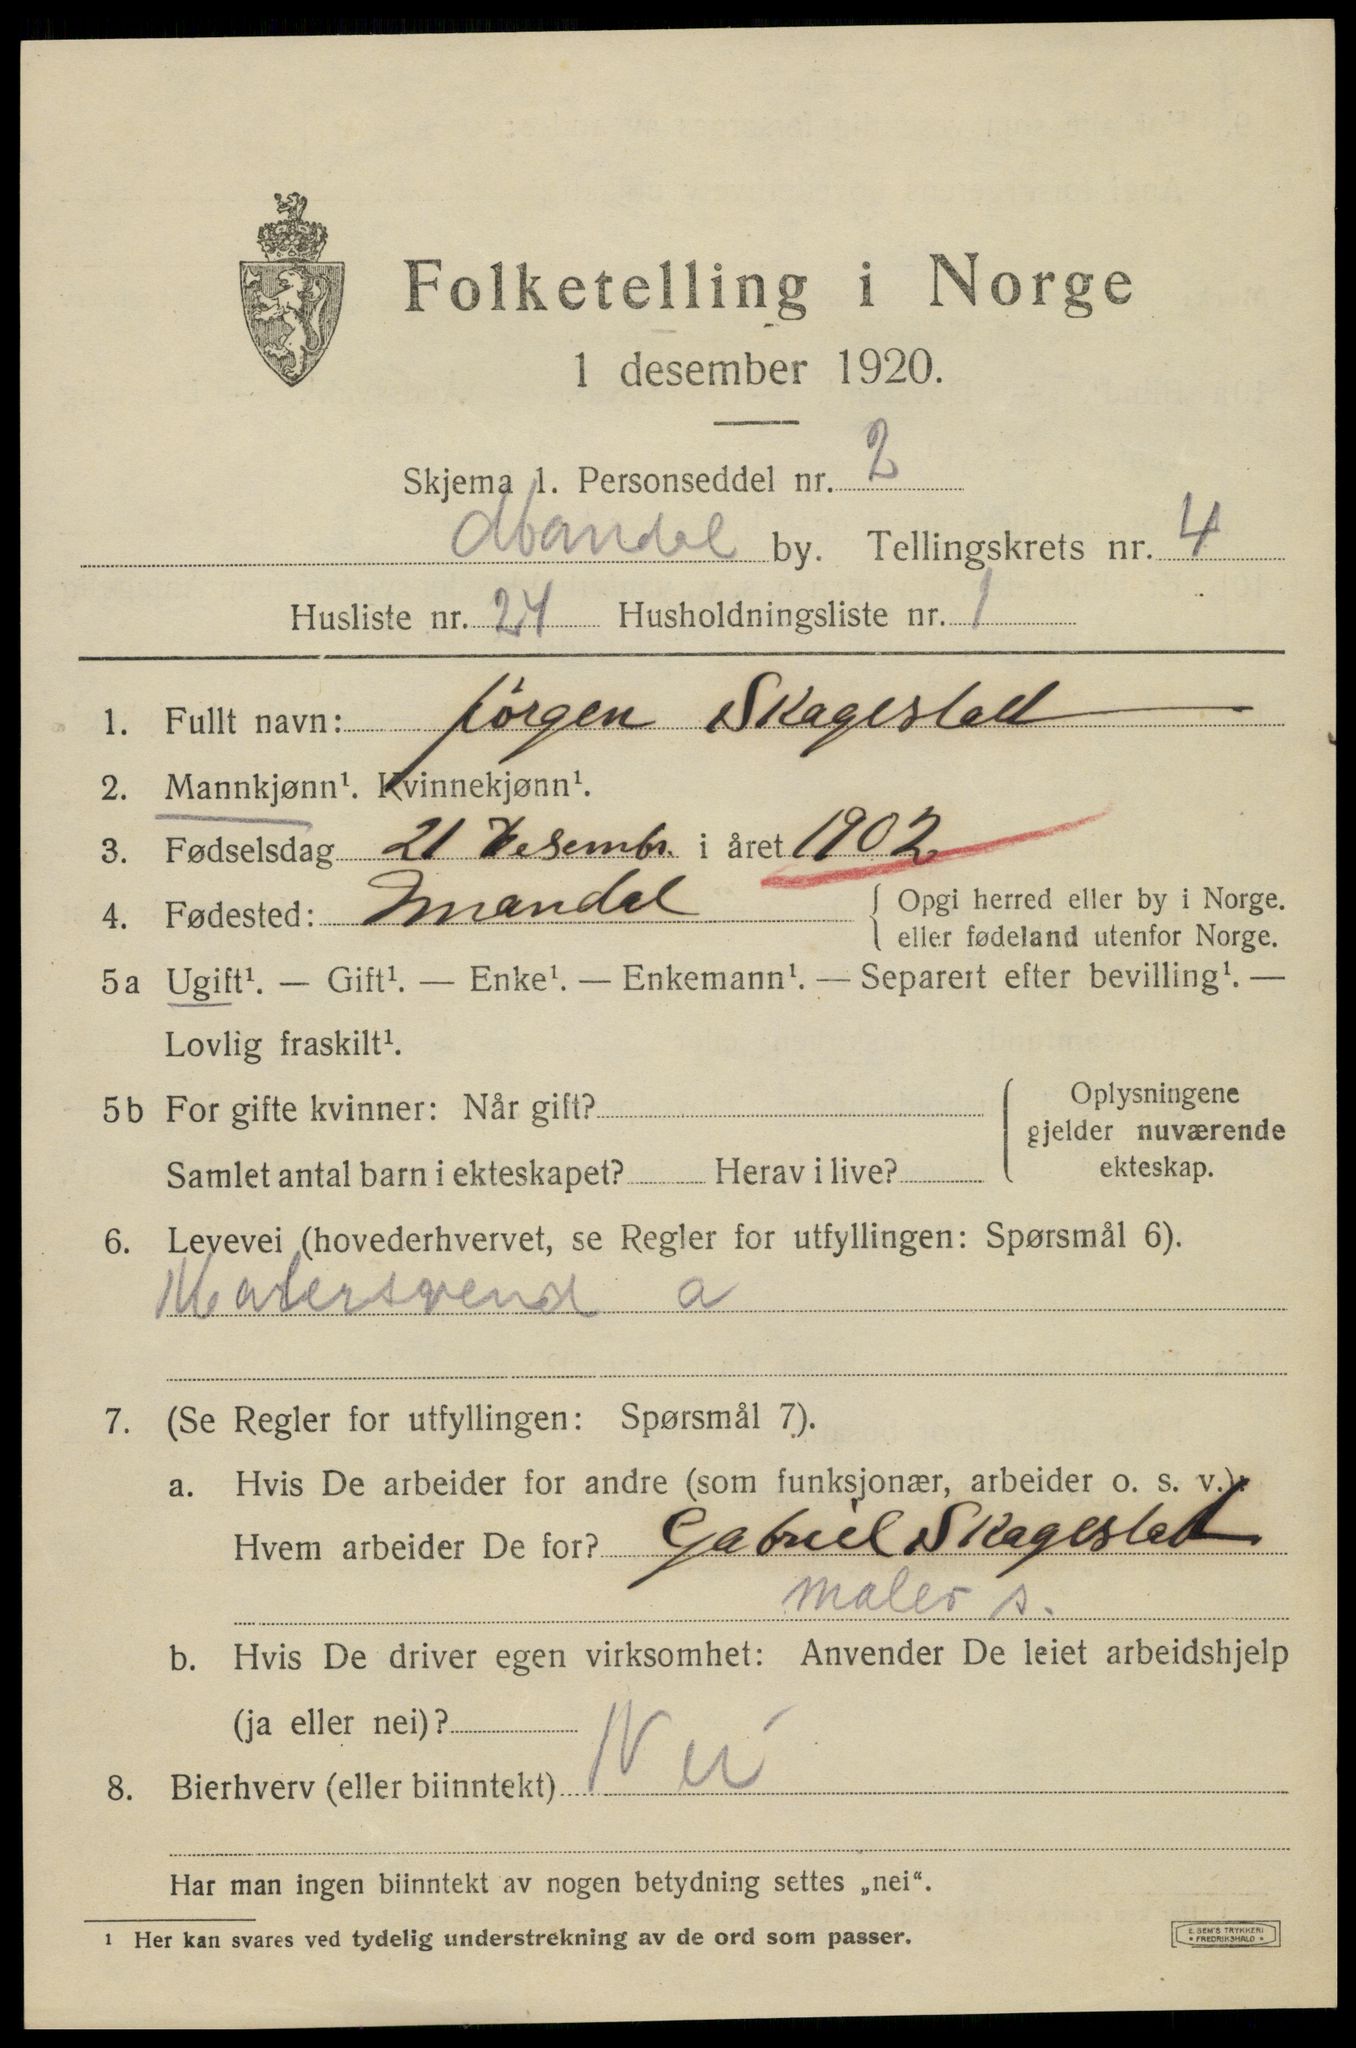 Folketelling i Norge
1 desember 1920.
Skjema 1. Personseddel nr. 2
Mandal by. Tellingskrets nr. 4
Husliste nr. 24 Husholdningsliste nr. 1
1. Fullt navn: Jörgen Skagestad
2. Mannkjønn¹. Kvinnekjønn¹.
3. Fødselsdag 21 Desembr. i året 1902
4. Fødested: Mandal { Opgi herred eller by i Norge.
eller fødeland utenfor Norge.
5a Ugift¹. — Gift¹. — Enke¹. — Enkemann¹. — Separert efter bevilling¹. —
Lovlig fraskilt¹.
5b For gifte kvinner: Når gift?
Samlet antal barn i ekteskapet? Herav i live?
Oplysningene
gjelder nuværende
ekteskap.
6. Levevei (hovederhvervet, se Regler for utfyllingen: Spørsmål 6).
Malersvend a
7. (Se Regler for utfyllingen: Spørsmål 7).
a. Hvis De arbeider for andre (som funksjonær, arbeider o. s. v.):
Hvem arbeider De for? Gabriel Skagestad
maler s.
b. Hvis De driver egen virksomhet: Anvender De leiet arbeidshjelp
(ja eller nei)?
8. Bierhverv (eller biinntekt) Nei
Har man ingen biinntekt av nogen betydning settes „nei“.
¹ Her kan svares ved tydelig understrekning av de ord som passer.
E. SEM'S TRYKKERI
* FREDRIKSHALD *